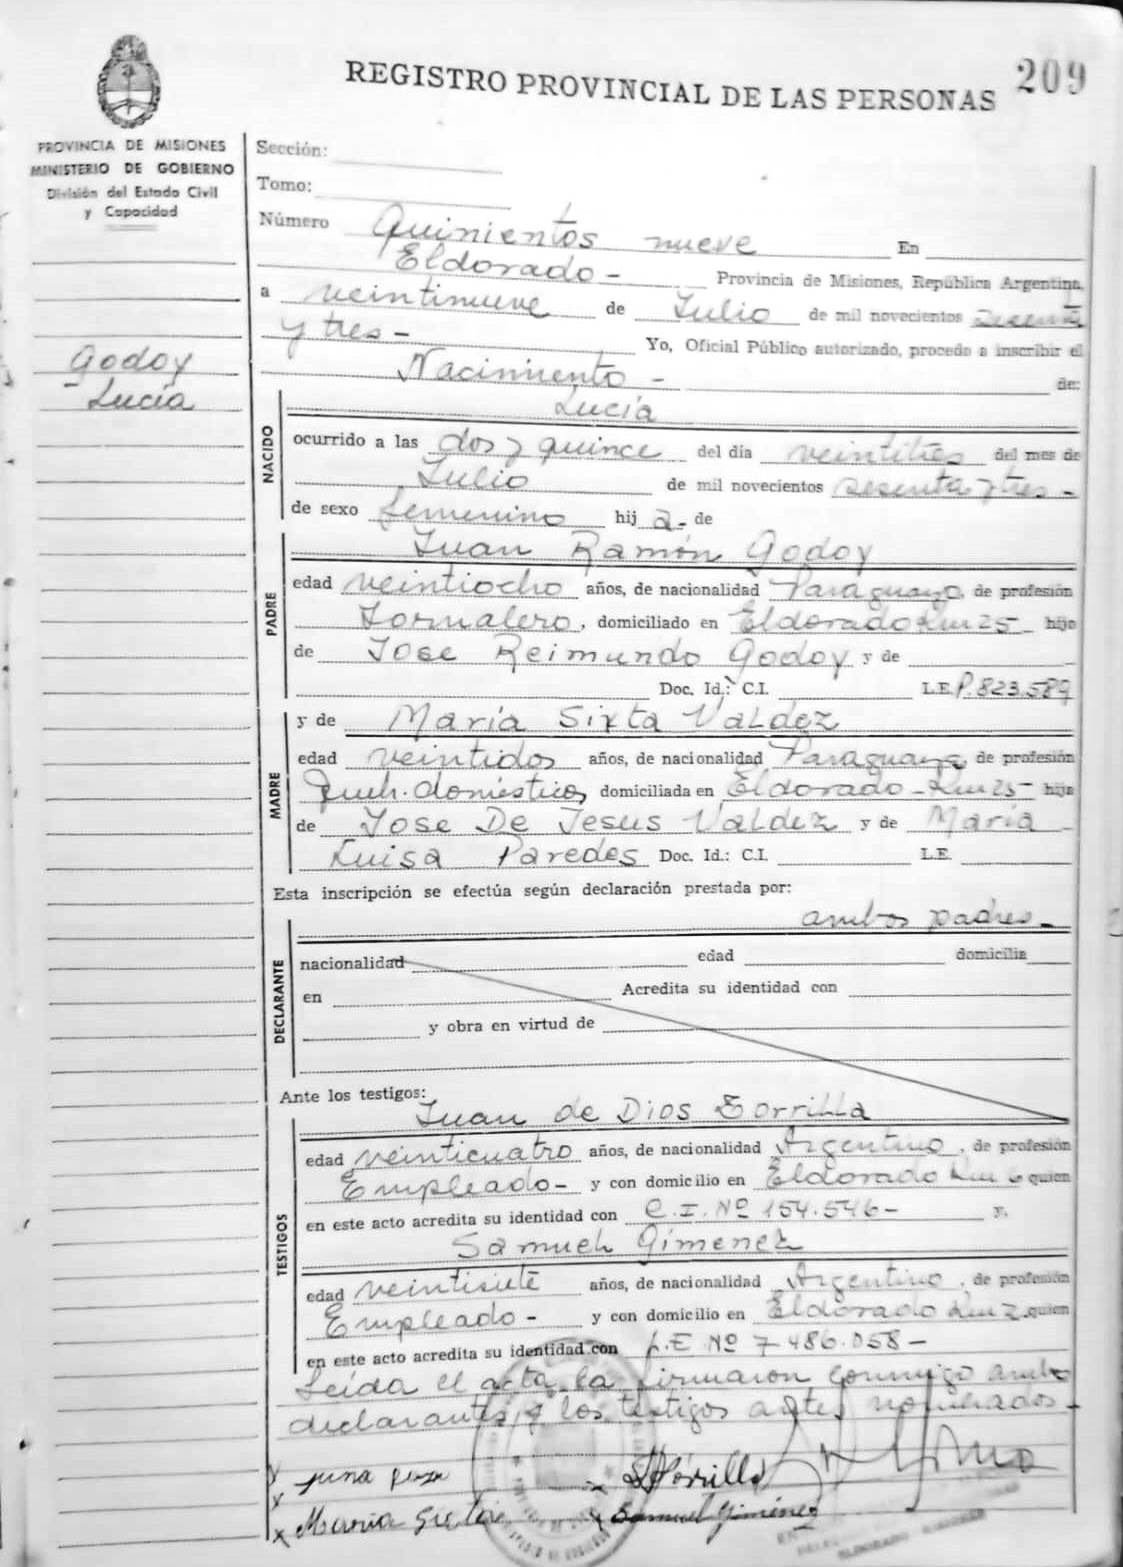 209
REGISTRO PROVINCIAL DE LAS PERSONAS
PROVINCIA DE MISIONES
MINISTERIO DE GOBIERNO
División del Estado Civil
y Capacidad
Godoy
Lucía
Sección:
Tomo:
Número Quinientos nueve En
Eldorado - Provincia de Misiones, República Argentina,
a veintinueve de Julio de mil novecientos sesenta
y tres - Yo, Oficial Público autorizado, procedo a inscribir el
Nacimiento - de:
Lucía
NACIDO
ocurrido a las dos y quince del día veintitres del mes de
Julio de mil novecientos sesenta y tres -
de sexo femenino hij a - de
Juan Ramón Godoy
PADRE
edad veintiocho años, de nacionalidad Paraguayo, de profesión
Jornalero, domiciliado en Eldorado Km 25 - hijo
de Jose Reimundo Godoy y de
Doc. Id.: C.I. L.E. P. 823.589
y de María Sixta Valdez
MADRE
edad veintidos años, de nacionalidad Paraguaya de profesión
Queh. domésticos, domiciliada en Eldorado - Km 25 - hija
de Jose De Jesus Valdez y de María
Luisa Paredes Doc. Id.: C.I. L.E.
Esta inscripción se efectúa según declaración prestada por:
ambos padres -
DECLARANTE
nacionalidad edad domicilia
en Acredita su identidad con
y obra en virtud de
Ante los testigos:
Juan de Dios Borrilla
TESTIGOS
edad veinticuatro años, de nacionalidad Argentino, de profesión
Empleado - y con domicilio en Eldorado Km 6 quien
en este acto acredita su identidad con C.I. Nº 154.546 - y,
Samuel Gimenez
edad veintisiete años, de nacionalidad Argentino, de profesión
Empleado - y con domicilio en Eldorado Km 2 quien
en este acto acredita su identidad con L.E Nº 7.486.058 -
Leída el acta la firmaron conmigo ambos
declarantes y los testigos antes nombrados -
Maria
Samuel Giménez